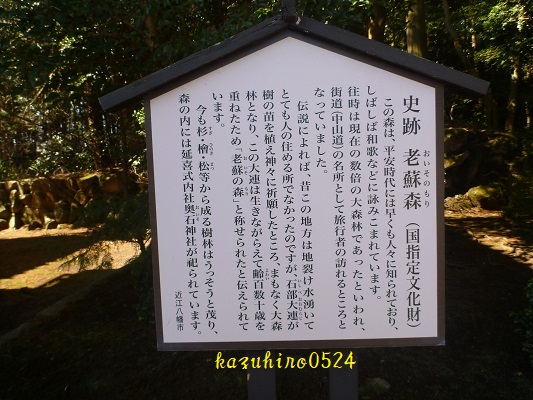 史跡 老蘇森(国指定文化財)
おいそのもり
この森は、平安時代には早くも人々に知られており、
しばしば和歌などに詠みこまれています。
往時は現在の数倍の大森林であったといわれ、
街道(中山道)の名所として旅行者の訪れるところと
なっていました。
伝説によれば、昔この地方は地裂け水湧いて
とても人の住める所でなかったのですが、石部大連が
樹の苗を植え神々に祈願したところ、まもなく大森
林となり、この大連は生きながらえて齢百数十歳を
重ねたため「老蘇の森」と称せられたと伝えられて
います。
今も杉・檜・松等から成る樹林はうっそうと茂り、
森の内には延喜式内社奥石神社が祀られています。
近江八幡市
kazuhiro0524